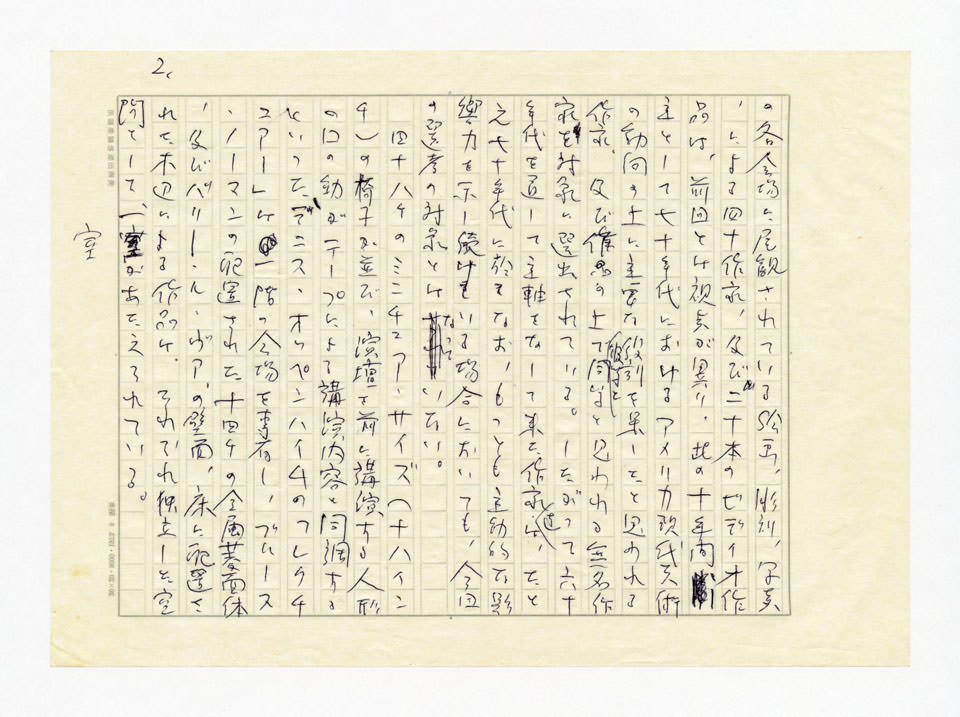 2.
の各会場に展観されている絵画、彫刻、写真
、による四十作家、及び二十本のビデオ作
品は、前回とは視点が異り、此の十年間
主として七十年代におけるアメリカ現代美術
の動向の上に主要な役割を果したと思われる
作家、及び作品の上で彼等と同等と思われる無名作
家を対象に選出されている。したがって六十
年代を通して主軸をなして来た作家達は、たと
え七十年代に於てなお、もっとも主動的な影
響力を示し続けている場合においても、今回
の選考の対象とはなっていない。
四十八ケのミニチュア・サイズ(十八イン
チ)の椅子が並び、演壇を前に講演する人形
の口の動がテープによる講演内容と同調する
といった、デニス・オッペンハイムのフレクチ
ュアーしは一階の会場を専有し、ブルース
・ノーマンの配置された十四ケの金属菱面体
、及びバリー・ル・ヴァの壁面、床に配置さ
れた木辺による作品は、それぞれ独立した空
間として、一室があたえられている。
室